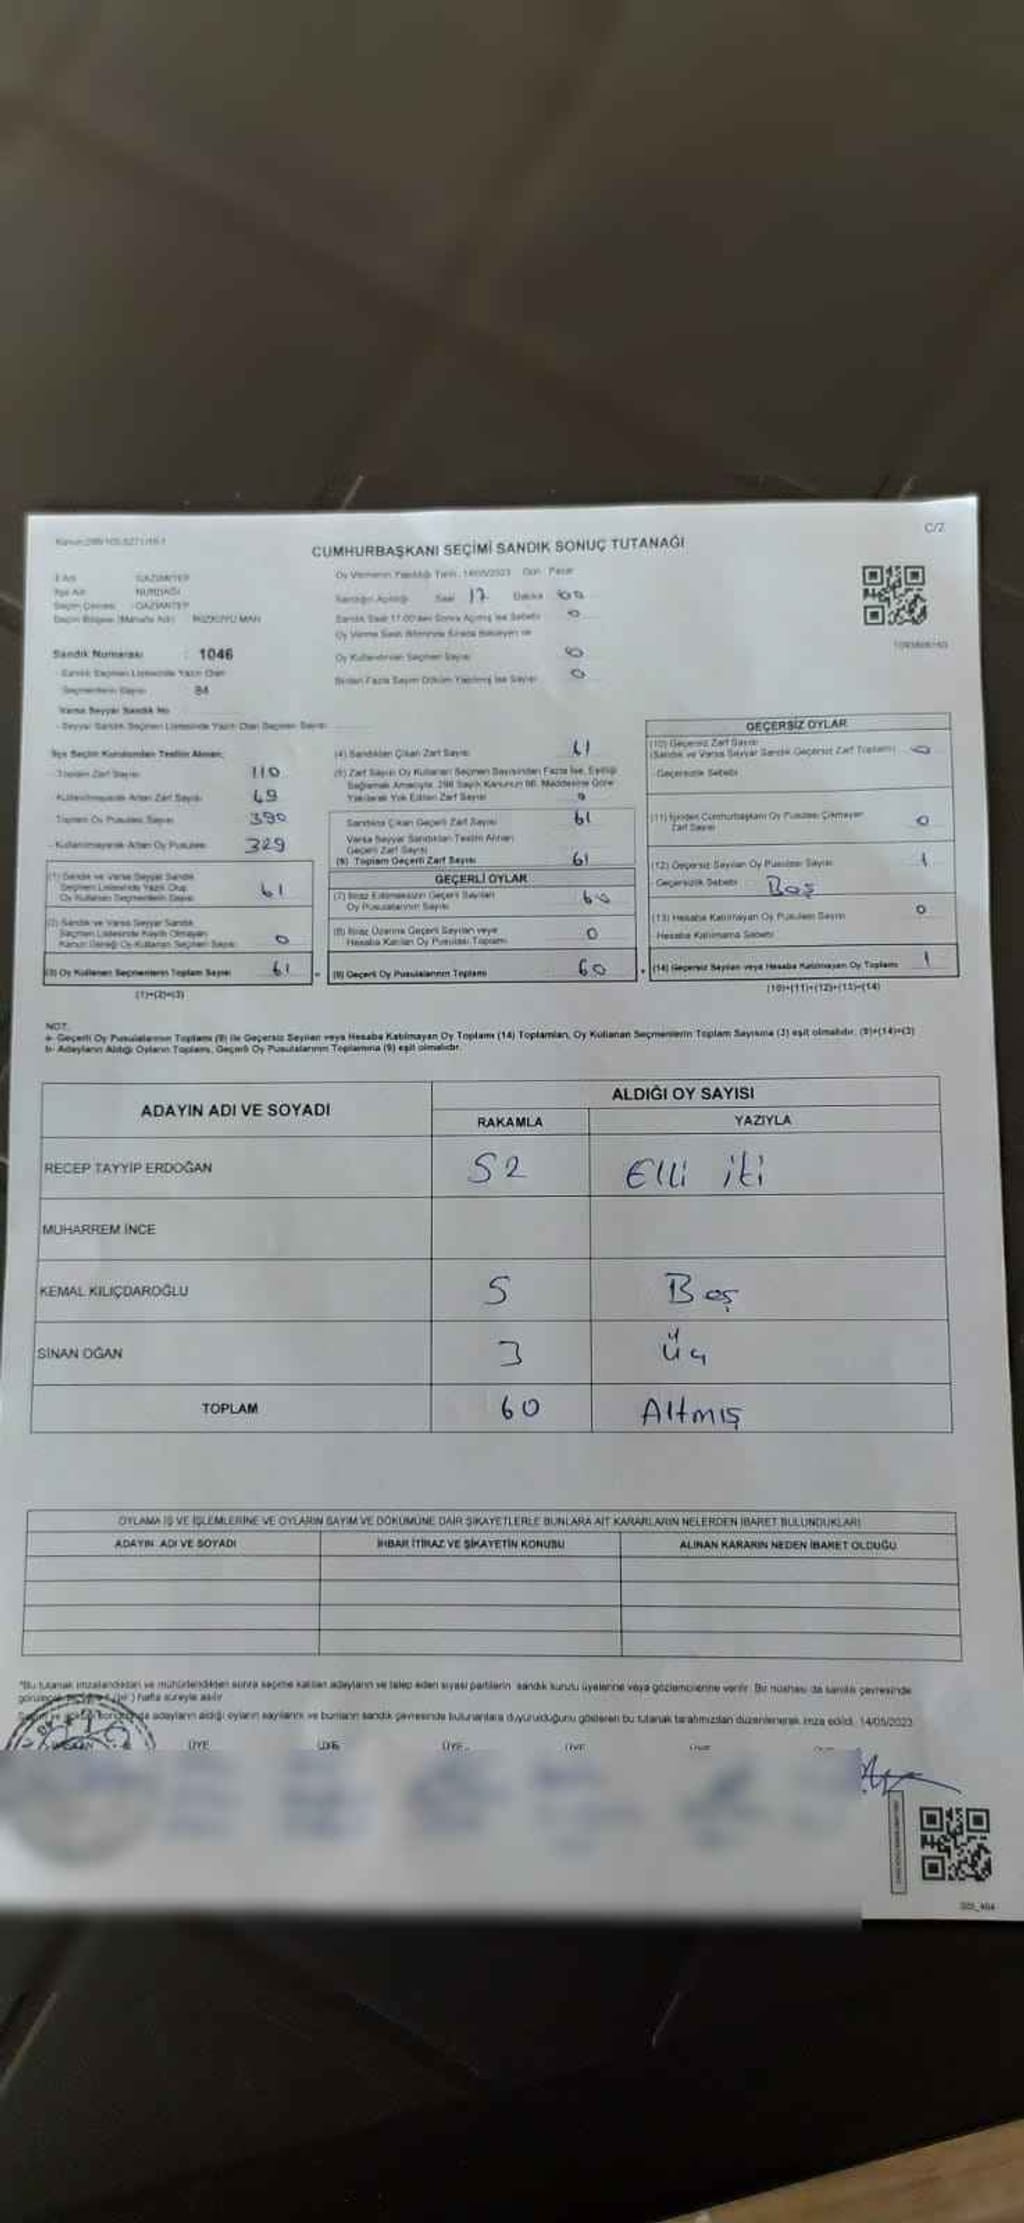 C/2
CUMHURBAŞKANI SEÇİMİ SANDIK SONUÇ TUTANAĞI
İl Adı GAZİANTEP
İlçe Adı NURDAĞI
Seçim Çevresi GAZİANTEP
Oy Vermenin Yapıldığı Tarih: 14/05/2023 Gün: Pazar
Sandığın Açıldığı Saat 17 Dakika 00
Sandık Saat 17:00'den Sonra Açılmış İse Sebebi 0
Oy Kullandırılan Seçmen Sayısı 0
Birden Fazla Sayım Döküm Yapılmış İse Sayısı 0
Sandık Numarası : 1046
Sandık Seçmen Listesinde Yazılı Olan
Seçmenlerin Sayısı 84
Varsa Seyyar Sandık No
Seyyar Sandık Seçmen Listesinde Yazılı Olan Seçmen Sayısı
İlçe Seçim Kurulundan Teslim Alınan;
Toplam Zarf Sayısı 110
Kullanılmayarak Artan Zarf Sayısı 49
Toplam Oy Pusulası Sayısı 390
Kullanılmayarak Artan Oy Pusulası 329
(1) Sandık ve Varsa Seyyar Sandık
Seçmen Listesinde Yazılı Olup
Oy Kullanan Seçmenlerin Sayısı 61
(2) Sandık ve Varsa Seyyar Sandık
Seçmen Listesinde Kayıtlı Olmayan
Kanun Gereği Oy Kullanan Seçmen Sayısı 0
(3) Oy Kullanan Seçmenlerin Toplam Sayısı 61
(1)+(2)=(3)
(4) Sandıktan Çıkan Zarf Sayısı 61
(5) Zarf Sayısı Oy Kullanan Seçmen Sayısından Fazla İse, Eşitliği
Sağlamak Amacıyla, 298 Sayılı Kanunun 98. Maddesine Göre
Yakılarak Yok Edilen Zarf Sayısı
Sandıkta Çıkan Geçerli Zarf Sayısı 61
Varsa Seyyar Sandıktan Teslim Alınan
Geçerli Zarf Sayısı
(6) Toplam Geçerli Zarf Sayısı 61
GEÇERLİ OYLAR
(7) İtiraz Edilmeksizin Geçerli Sayılan
Oy Pusulalarının Sayısı 60
(8) İtiraz Üzerine Geçerli Sayılan veya
Hesaba Katılan Oy Pusulası Toplamı 0
(9) Geçerli Oy Pusulalarının Toplamı 60
GEÇERSİZ OYLAR
(10) Geçersiz Zarf Sayısı
(Sandık ve Varsa Seyyar Sandık Geçersiz Zarf Toplamı) 0
Geçersizlik Sebebi
(11) İçinden Cumhurbaşkanı Oy Pusulası Çıkmayan
Zarf Sayısı 0
(12) Geçersiz Sayılan Oy Pusulası Sayısı 1
Geçersizlik Sebebi Boş
(13) Hesaba Katılmayan Oy Pusulası Sayısı 0
Hesaba Katılmama Sebebi
(14) Geçersiz Sayılan veya Hesaba Katılmayan Oy Toplamı 1
(10)+(11)+(12)+(13)=(14)
NOT:
a- Geçerli Oy Pusulalarının Toplamı (9) ile Geçersiz Sayılan veya Hesaba Katılmayan Oy Toplamı (14) Toplamları, Oy Kullanan Seçmenlerin Toplam Sayısına (3) eşit olmalıdır. (9)+(14)=(3)
b- Adayların Aldığı Oyların Toplamı, Geçerli Oy Pusulalarının Toplamına (9) eşit olmalıdır.
ADAYIN ADI VE SOYADI ALDIĞI OY SAYISI
RAKAMLA YAZIYLA
RECEP TAYYİP ERDOĞAN 52 Elli iki
MUHARREM İNCE
KEMAL KILIÇDAROĞLU 5 Beş
SİNAN OĞAN 3 Üç
TOPLAM 60 Altmış
OYLAMA İŞ VE İŞLEMLERİNE VE OYLARIN SAYIM VE DÖKÜMÜNE DAİR ŞİKAYETLERLE BUNLARA AİT KARARLARIN NELERDEN İBARET BULUNDUKLARI
ADAYIN ADI VE SOYADI İHBAR İTİRAZ VE ŞİKAYETİN KONUSU ALINAN KARARIN NEDEN İBARET OLDUĞU
*Bu tutanak imzalandıktan ve mühürlendikten sonra seçime katılan adayların ve talep eden siyasi partilerin sandık kurulu üyelerine veya gözlemcilerine verilir. Bir nüshası da sandık çevresinde
hafta süreyle asılır.
adayların aldığı oyların sayılarını ve bunların sandık çevresinde bulunanlara duyurulduğunu gösteren bu tutanak tarafımızdan düzenlenerek imza edildi. 14/05/2023
ÜYE ÜYE ÜYE ÜYE